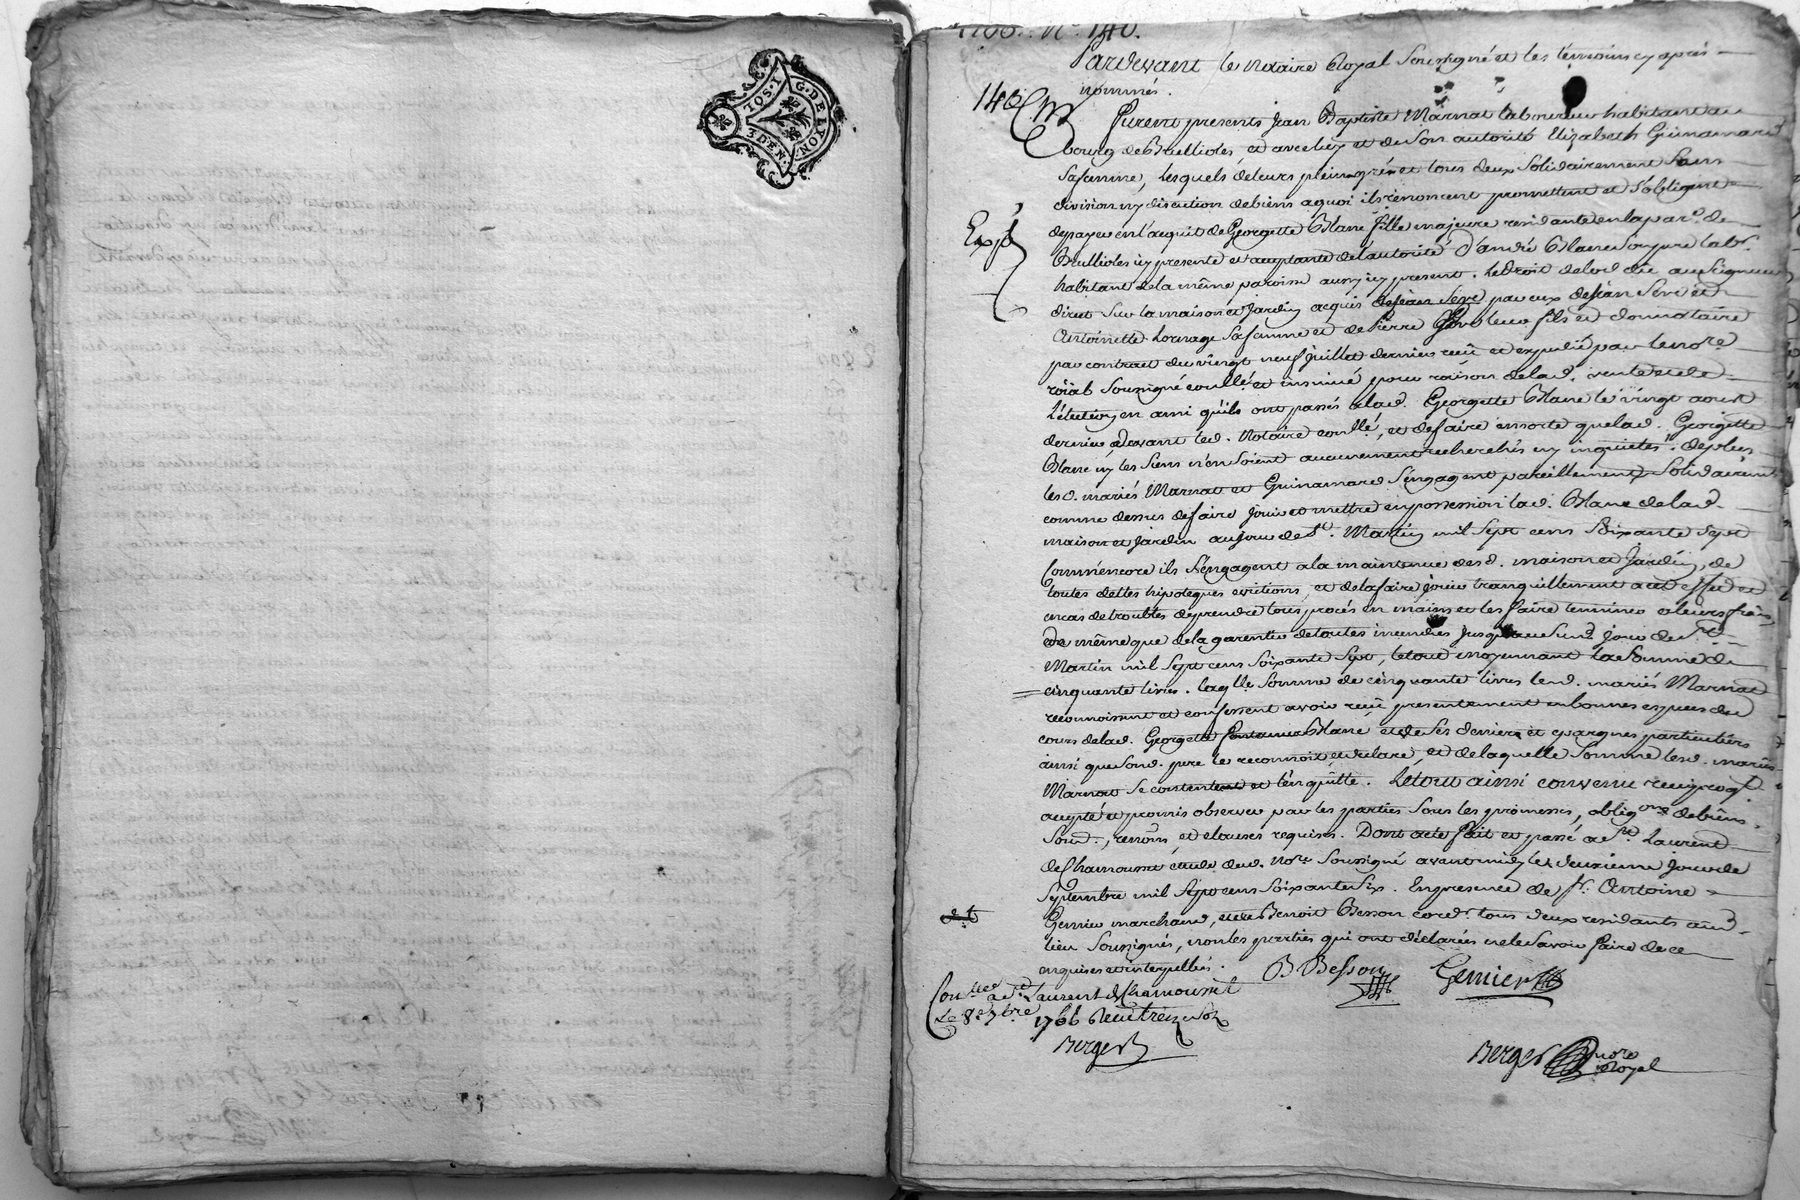 G. DE LYON
10S. I
3 DEN.
1766. No. 140.
Pardevant le Notaire Royal Soussigné et les témoins cy après
nommés.
140e
Furent presents Jean Baptiste Marnat laboureur habitant au
bourg de Brullioles, et avec luy et de Son autorité Elizabeth Guinamard
Sa femme, Lesquels de leurs plein gré et tous deux Solidairement Sans
division ny discution de biens a quoi ils renoncent promettent et S'obligent
Exp.
de payer en l'acquit de Georgette Blanc fille majeure residante en la paro. de
Brullioles icy presente et acceptante de l'autorité d'andré Blanc Son pere labr.
habitant de la même paroisse aussy icy present. Le droit de lod dû au Seigneur
direct Sur la maison et Jardin acquis de Jean Seve par eux de Jean Seve et
Antoinette Lornage Sa femme et de Pierre Seve leur fils et donnataire
par contract du vingt neuf Juillet dernier reçû et expedié par le nore.
roïal Soussigné conllé et insinué pour raison de lad. vente et de
L'élection en ami qu'ils ont passés à lad. Georgette Blanc le vingt aoust
dernier devant led. Notaire conllé, et de faire en sorte que lad. Georgette
Blanc ny les Siens n'en Soient aucunement recherchés ny inquietés. de plus
lesd. mariés Marnat et Guinamard S'engagent pareillement Solidairemt
comme dessus de faire Jouir et mettre en possession lad. Blanc de lad.
maison et Jardin au jour de St. Martin mil Sept cens Soixante Sept
Comm'encore ils S'engagent a la maintenue desd. maison et Jardin, de
toutes dettes hipoteques evictions, et de la faire joüir tranquillement a cet effet et
en cas de troubles de prendre tous procés en mains et les faire terminer a leurs frais
de même que de la garentir de toutes incendies Jusqu'au Susd. jour de St.
Martin mil Sept cens Soixante Sept, le tout moyennant la Somme de
cinquante livres. laqlle Somme de cinquante livres lesd. mariés Marnat
reconnoissent et confessent avoir reçû presentement en bonnes especes du
cours de lad. Georgette Blanc et de Ses deniers et epargnes particuliers
ainsi que Sond. pere le reconnoit et declare, et de laquelle Somme lesd. mariés
Marnat Se contentent et l'en quitte. Le tout ainsi convenu reciproqt.
accepté et promis observer par les parties Sous les promesses, obligons de biens,
Soum., renons, et clauses requises. Dont acte fait et passé a St Laurent
de Chamousset étude dud. Nore Soussigné avant midy le deuxieme jour de
Septembre mil Sept cens Soixante Six. En presence de Sr. Antoine
Gemier marchand, et de Benoit Besson cordr. tous deux residants aud.
lieu Soussignés, non les parties qui ont déclarées ne le Savoir faire de ce
enquises et interpellés.
B Besson
Gemier
Conllé a St Laurent de Chamousset
Le 8e 7bre 1766 Reçu treize sols
Berger
Berger nore Royal